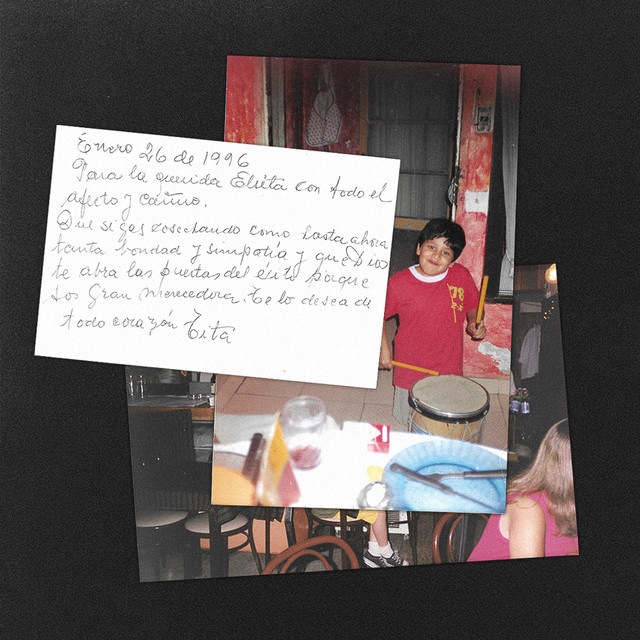 Enero 26 de 1996
Para la querida Elsita con todo el
afecto y cariño.
Que sigas cosechando como hasta ahora
tanta bondad y simpatía y que Dios
te abra las puertas del éxito porque
sos gran merecedora. Te lo desea de
todo corazón Tita
78